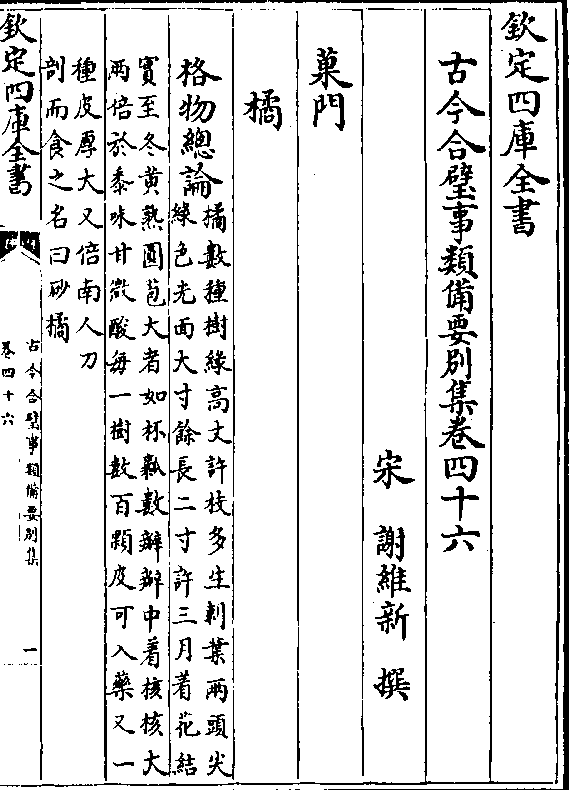 欽定四庫全書
古今合璧事類備要別集卷四十六
宋 謝維新 撰
菓門
橘
格物總論
橘數種樹緣高丈許枝多生刺葉兩頭尖
綠色光面大寸餘長二寸許三月着花結
實至冬黃熟圓苞大者如杯瓤數瓣瓣中着核核大
兩倍於黍味甘微酸每一樹數百顆皮可入藥又一
種皮厚大又倍南人刀
剖而食之名曰砂橘
欽定四庫全書
古今合璧事類備要別集
卷四十六
一